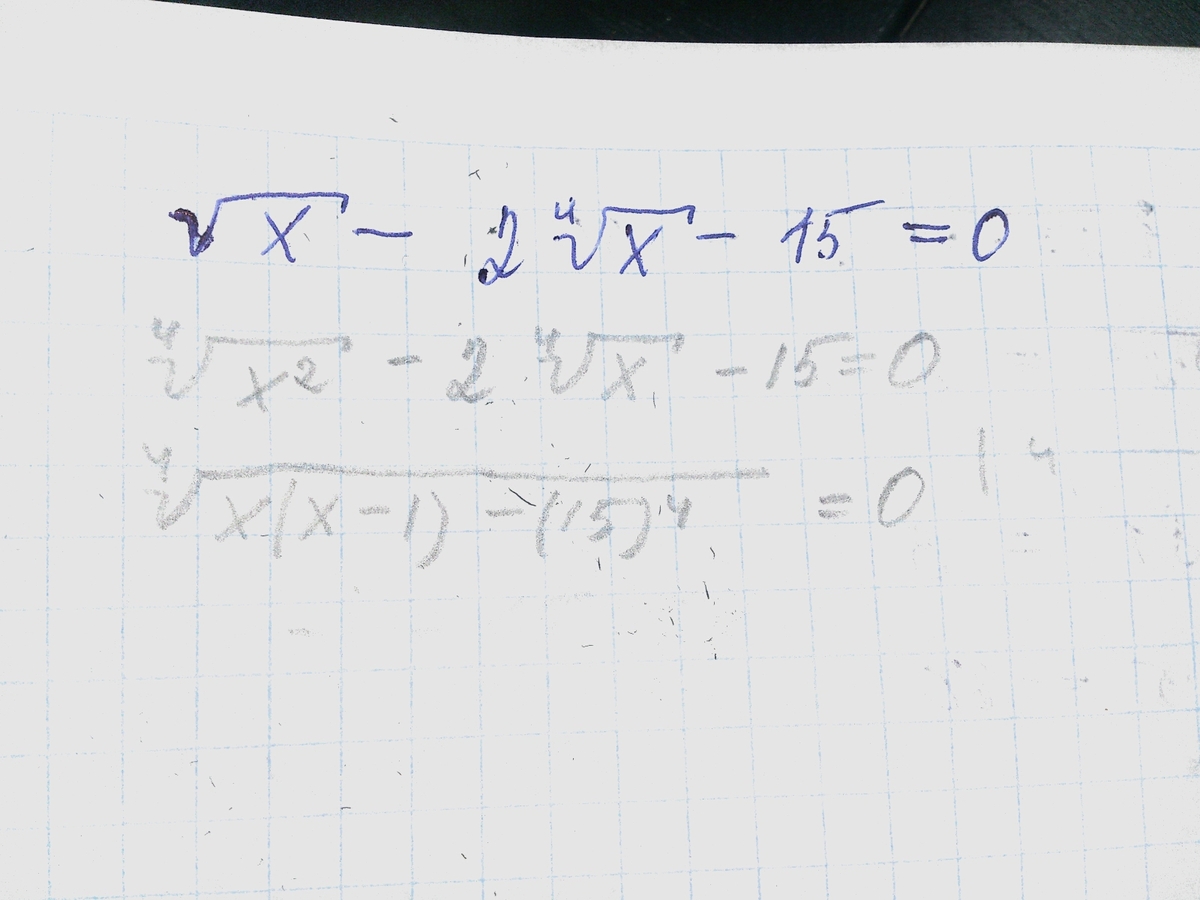 √x - 2 ⁴√x - 15 = 0
⁴√x² - 2 ⁴√x - 15 = 0
⁴√x(x-1) - (15)⁴ = 0 | 4